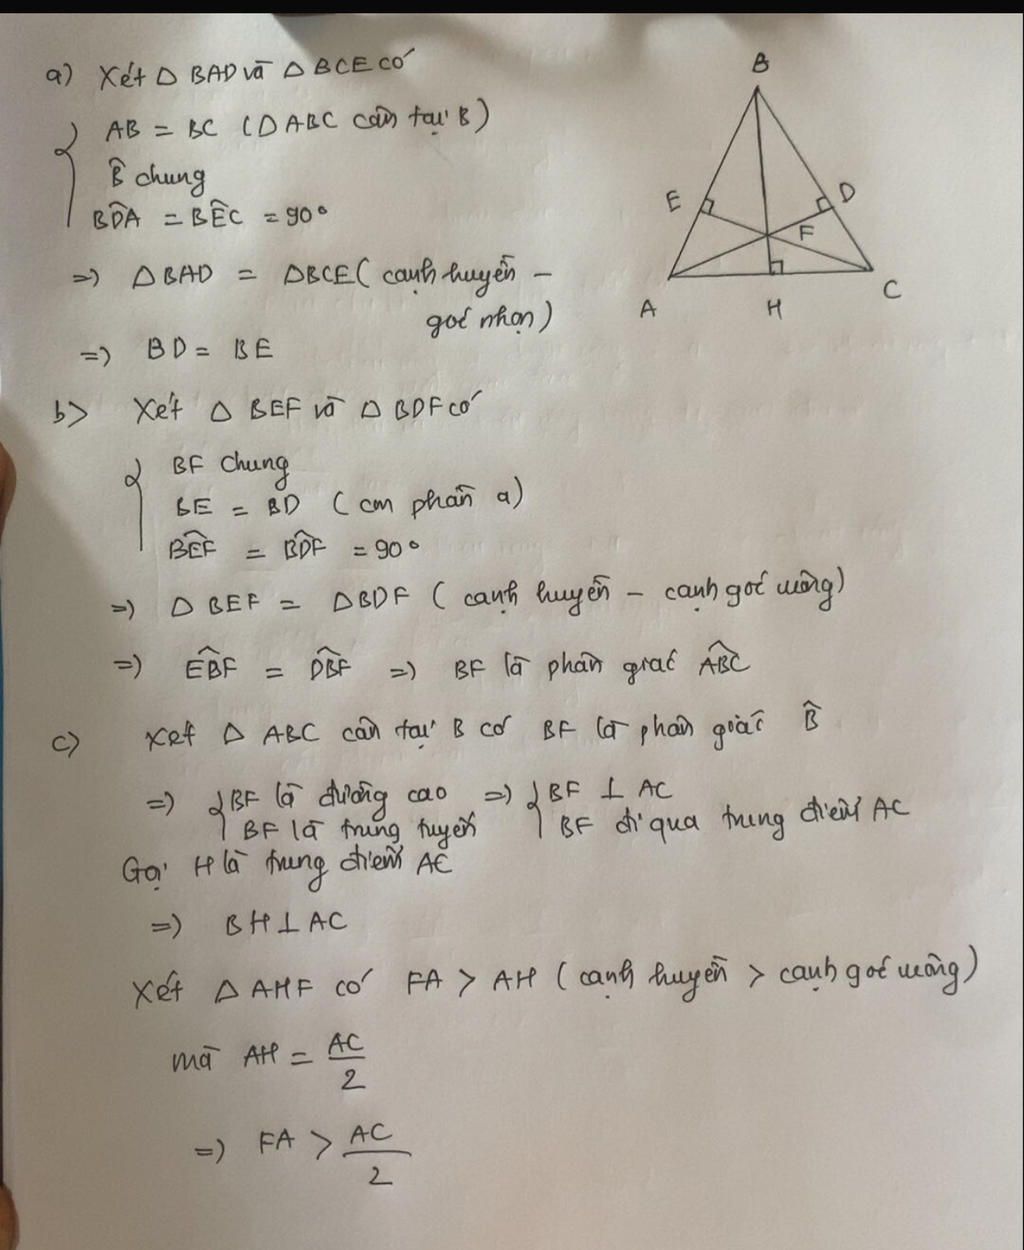 a) Xét Δ BAD và Δ BCE có
AB = BC (Δ ABC cân tại B)
B̂ chung
BD̂A = BÊC = 90°
=> Δ BAD = Δ BCE (cạnh huyền –
góc nhọn)
=> BD = BE
b> Xét Δ BEF và Δ BDF có
BF chung
BE = BD (cm phần a)
BÊF = BD̂F = 90°
=> Δ BEF = Δ BDF (cạnh huyền – cạnh góc vuông)
=> EB̂F = DB̂F => BF là phân giác AB̂C
c) Xét Δ ABC cân tại B có BF là phân giác B̂
=> { BF là đường cao => { BF ⊥ AC
BF là trung tuyến BF đi qua trung điểm AC
Gọi H là trung điểm AC
=> BH ⊥ AC
Xét Δ AHF có FA > AH (cạnh huyền > cạnh góc vuông)
mà AH = AC/2
=> FA > AC/2
B
E
D
F
A
H
C